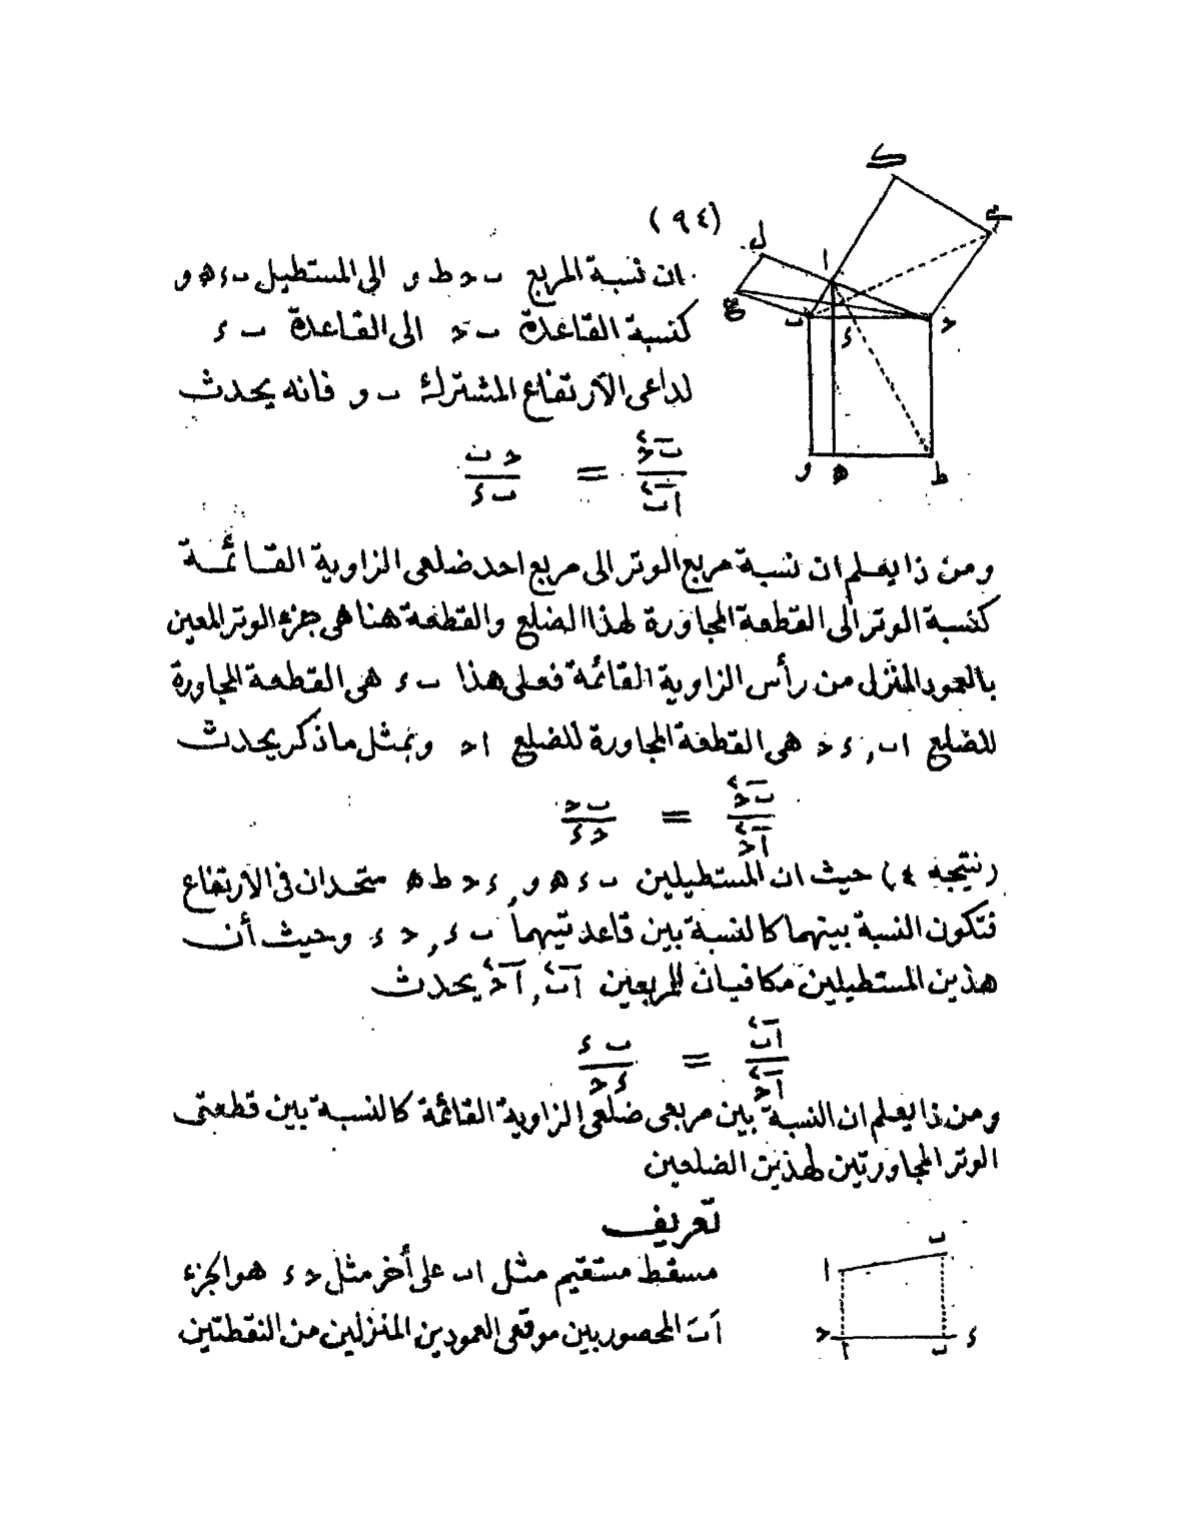 (٩٤)
ان نسبة المربع ب ح ط و الى المستطيل ب ء ه و
كنسبة القاعدة ب ح الى القاعدة ب ء
لداعى الارتفاع المشترك ب و فانه يحدث
ب ح٢ / ا ب٢ = ح ب / ب ء
ومن ذا يعلم ان نسبة مربع الوتر الى مربع احد ضلعى الزاوية القائمة
كنسبة الوتر الى القطعة المجاورة لهذا الضلع والقطعة هنا هى جزء الوتر المعين
بالعمود المنزل من رأس الزاوية القائمة فعلى هذا ب ء هى القطعة المجاورة
للضلع ا ب , ء ح هى القطعة المجاورة للضلع ا ح وبمثل ما ذكر يحدث
ب ح٢ / ا ح٢ = ب ح / ح ء
(نتيجه ٤) حيث ان المستطيلين ب ء ه و , ء ح ط ه متحدان فى الارتفاع
فتكون النسبة بينهما كالنسبة بين قاعدتيهما ب ء , ح ء وحيث أن
هذين المستطيلين مكافيان للمربعين ا ب٢ , ا ح٢ يحدث
ا ب٢ / ا ح٢ = ب ء / ء ح
ومن ذا يعلم ان النسبة بين مربعى ضلعى الزاوية القائمة كالنسبة بين قطعتى
الوتر المجاورتين لهذين الضلعين
تعريف
مسقط مستقيم مثل ا ب على أخر مثل ح ء هو الجزء
اَ بَ المحصور بين موقعى العمودين المنزلين من النقطتين
ك
ل
ا
ب
ء
ح
و
ه
ط
ب
ا
ح
ء